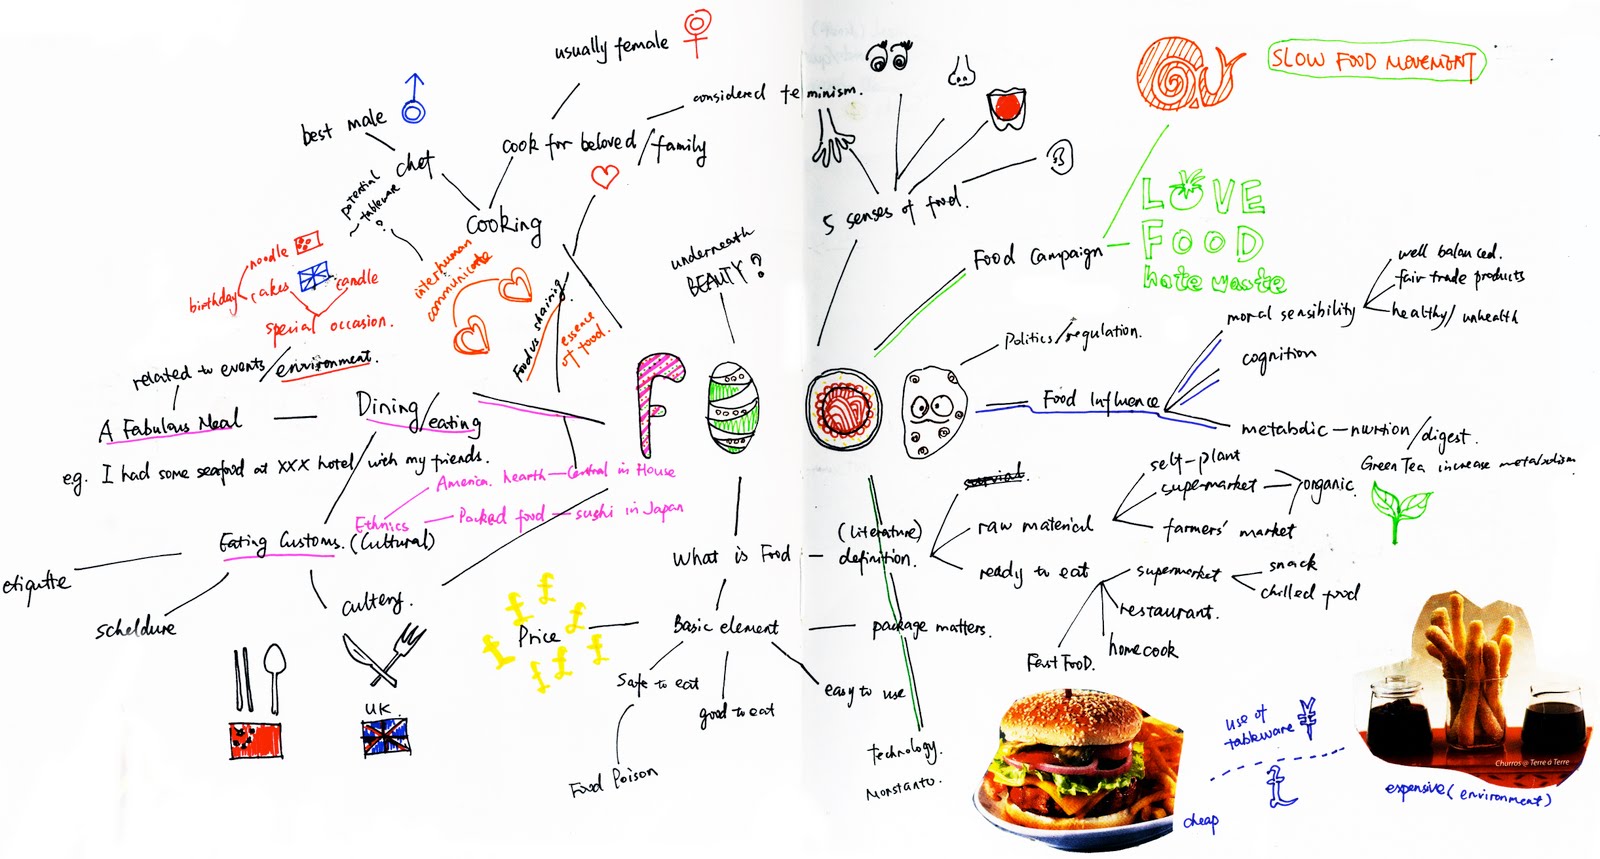 usually female
best male
considered feminism.
chef
cook for beloved/family
potential
tableware
?
cooking
interhuman
communicate
Food vs sharing
essence
of food.
noodle
birthday
cakes
candle
special occasion.
related to events/environment.
A Fabulous Meal
Dining/eating
eg. I had some seafood at XXX hotel/with my friends.
America. hearth — Central in House
Ethnics — Packed food — sushi in Japan
Eating Customs. (Cultural)
etiqutte
scheldure
cultery.
UK.
underneath
BEAUTY?
F
5 senses of food.
SLOW FOOD MOVEMENT
Food Campaign
LOVE
FOOD
hate waste
Politics/regulation.
Food Influence
moral sensibility
well balanced.
fair trade products
healthy/unhealth
cognition
metabolic — nurtion/digest.
Green Tea increase metabolism
What is Food
(literature)
definition.
survial
raw material
self-plant
supermarket
organic.
farmers' market
ready to eat
supermarket
snack
chilled food
restaurant.
homecook
Fast FooD.
Basic element
££££££££
Price
package matters.
safe to eat
good to eat
easy to use
Food Poison
technology.
Monstanto.
use of
tableware
¥
£
cheap
Churros @ Terre à Terre
expensive (environment)